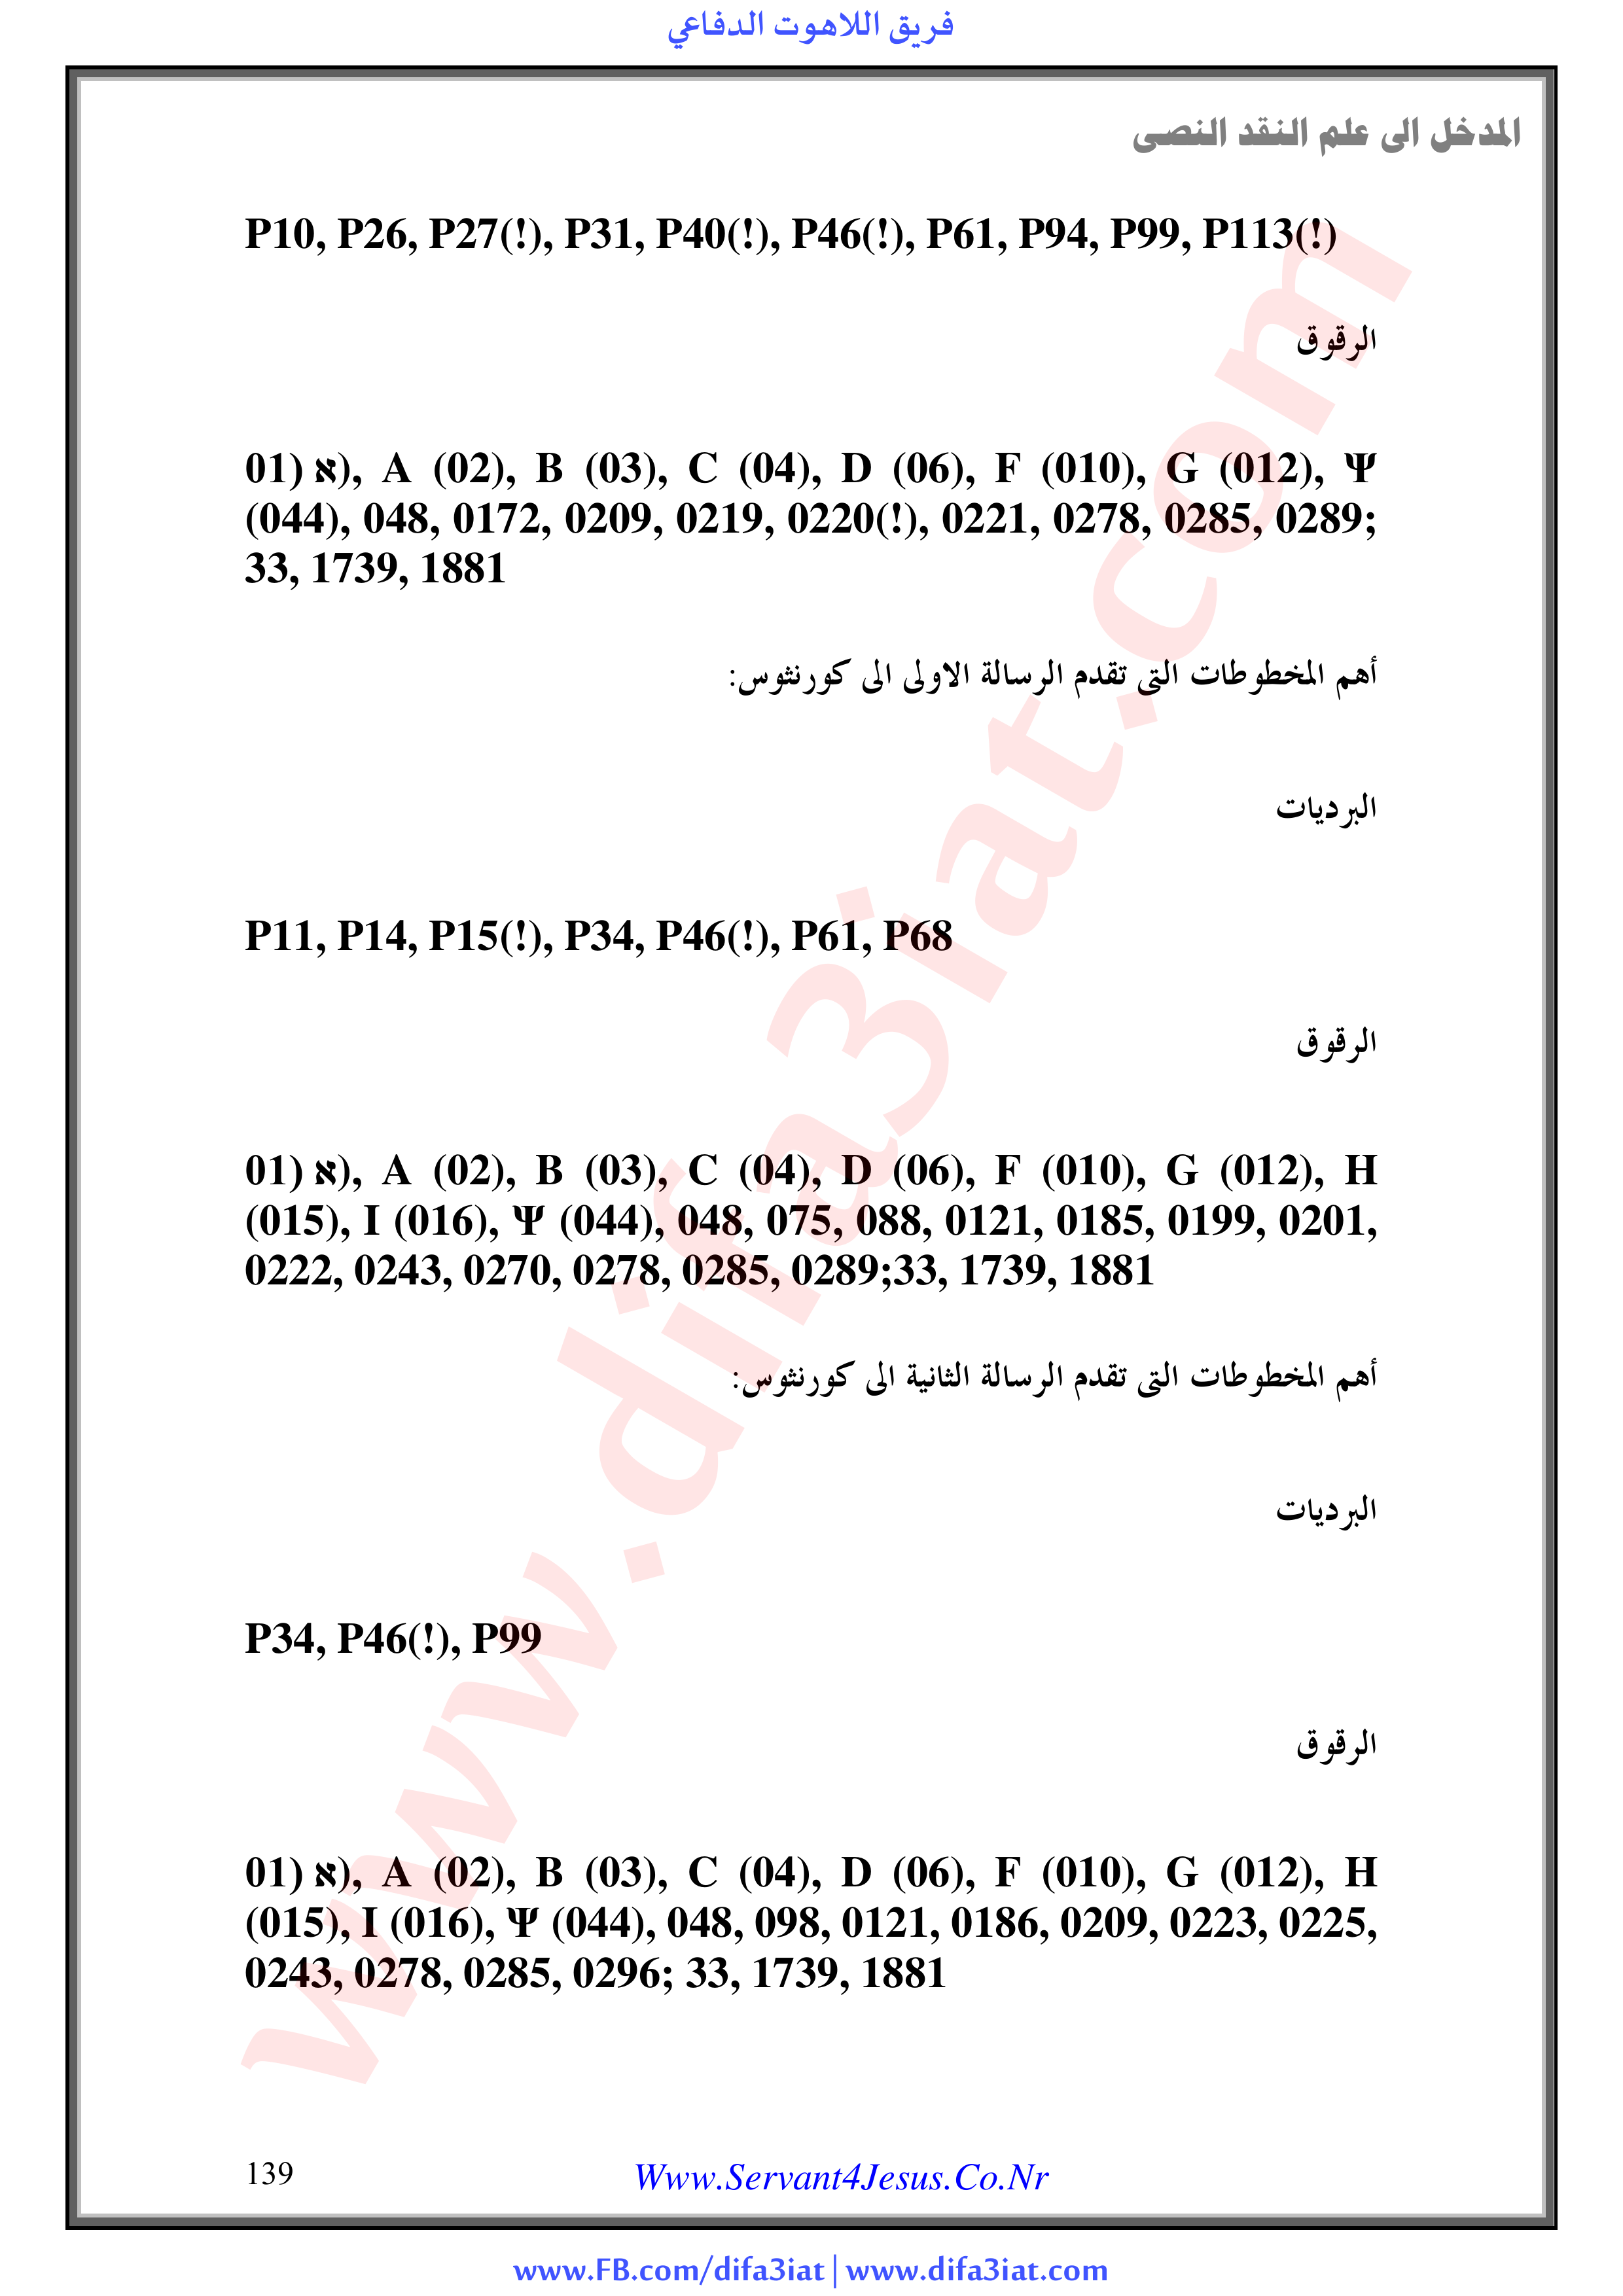 فريق اللاهوت الدفاعي
المدخل الى علم النقد النصى
P10, P26, P27(!), P31, P40(!), P46(!), P61, P94, P99, P113(!)
الرقوق
01) א), A (02), B (03), C (04), D (06), F (010), G (012), Ψ
(044), 048, 0172, 0209, 0219, 0220(!), 0221, 0278, 0285, 0289;
33, 1739, 1881
أهم المخطوطات التى تقدم الرسالة الاولى الى كورنثوس:
البرديات
P11, P14, P15(!), P34, P46(!), P61, P68
الرقوق
01) א), A (02), B (03), C (04), D (06), F (010), G (012), H
(015), I (016), Ψ (044), 048, 075, 088, 0121, 0185, 0199, 0201,
0222, 0243, 0270, 0278, 0285, 0289;33, 1739, 1881
أهم المخطوطات التى تقدم الرسالة الثانية الى كورنثوس:
البرديات
P34, P46(!), P99
الرقوق
01) א), A (02), B (03), C (04), D (06), F (010), G (012), H
(015), I (016), Ψ (044), 048, 098, 0121, 0186, 0209, 0223, 0225,
0243, 0278, 0285, 0296; 33, 1739, 1881
www.difa3iat.com
139
Www.Servant4Jesus.Co.Nr
www.FB.com/difa3iat | www.difa3iat.com